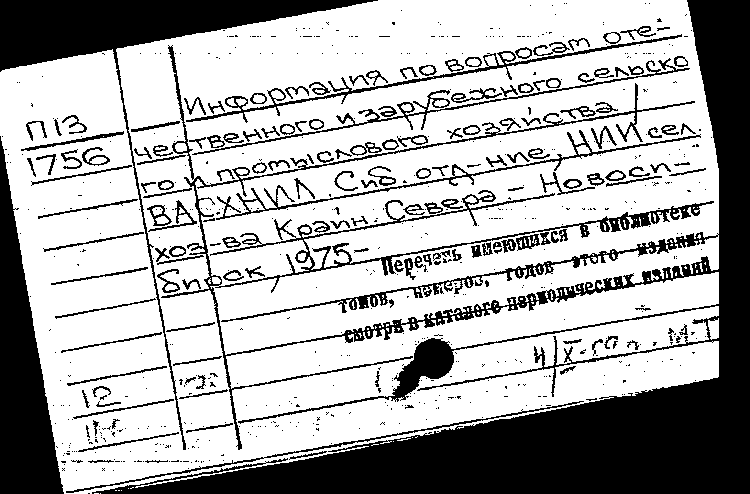 Информация по вопросам оте-
П13
чественного и зарубежного сельско
1756
го и промыслового хозяйства /
ВАСХНИЛ. Сиб. отд-ние, НИИ сел.
хоз-ва Крайн. Севера - Новоси-
бирск, 1975-
Перечень имеющихся в библиотеке
томов, номеров, годов этого издания
смотри в каталоге периодических изданий
12